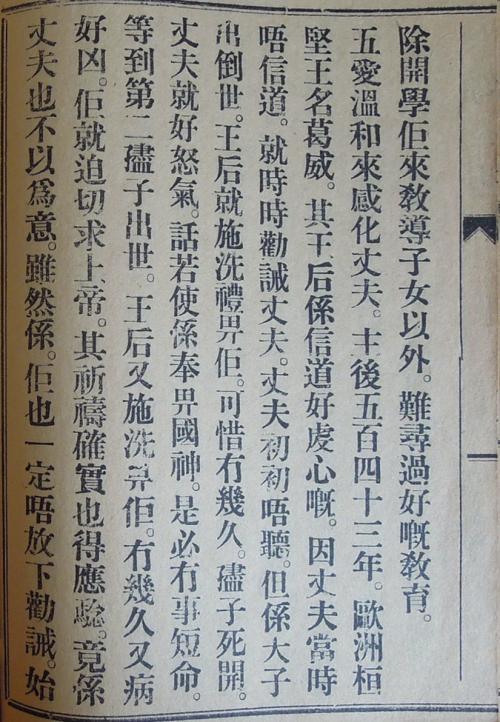 除開學佢來敎導子女以外。難尋過好嘅敎育。
五愛溫和來感化丈夫。主後五百四十三年。歐洲桓
堅王名葛威。其王后係信道好虔心嘅。因丈夫當時
唔信道。就時時勸誡丈夫。丈夫初初唔聽。但係大子
出倒世。王后就施洗禮畀佢。可惜冇幾久。孻子死開。
丈夫就好怒氣。話若使係奉畀國神。是必冇事短命。
等到第二孻子出世。王后又施洗畀佢。冇幾久又病
好凶。佢就迫切求上帝。其祈禱確實也得應驗。竟係
丈夫也不以爲意。雖然係。佢也一定唔放下勸誡。始